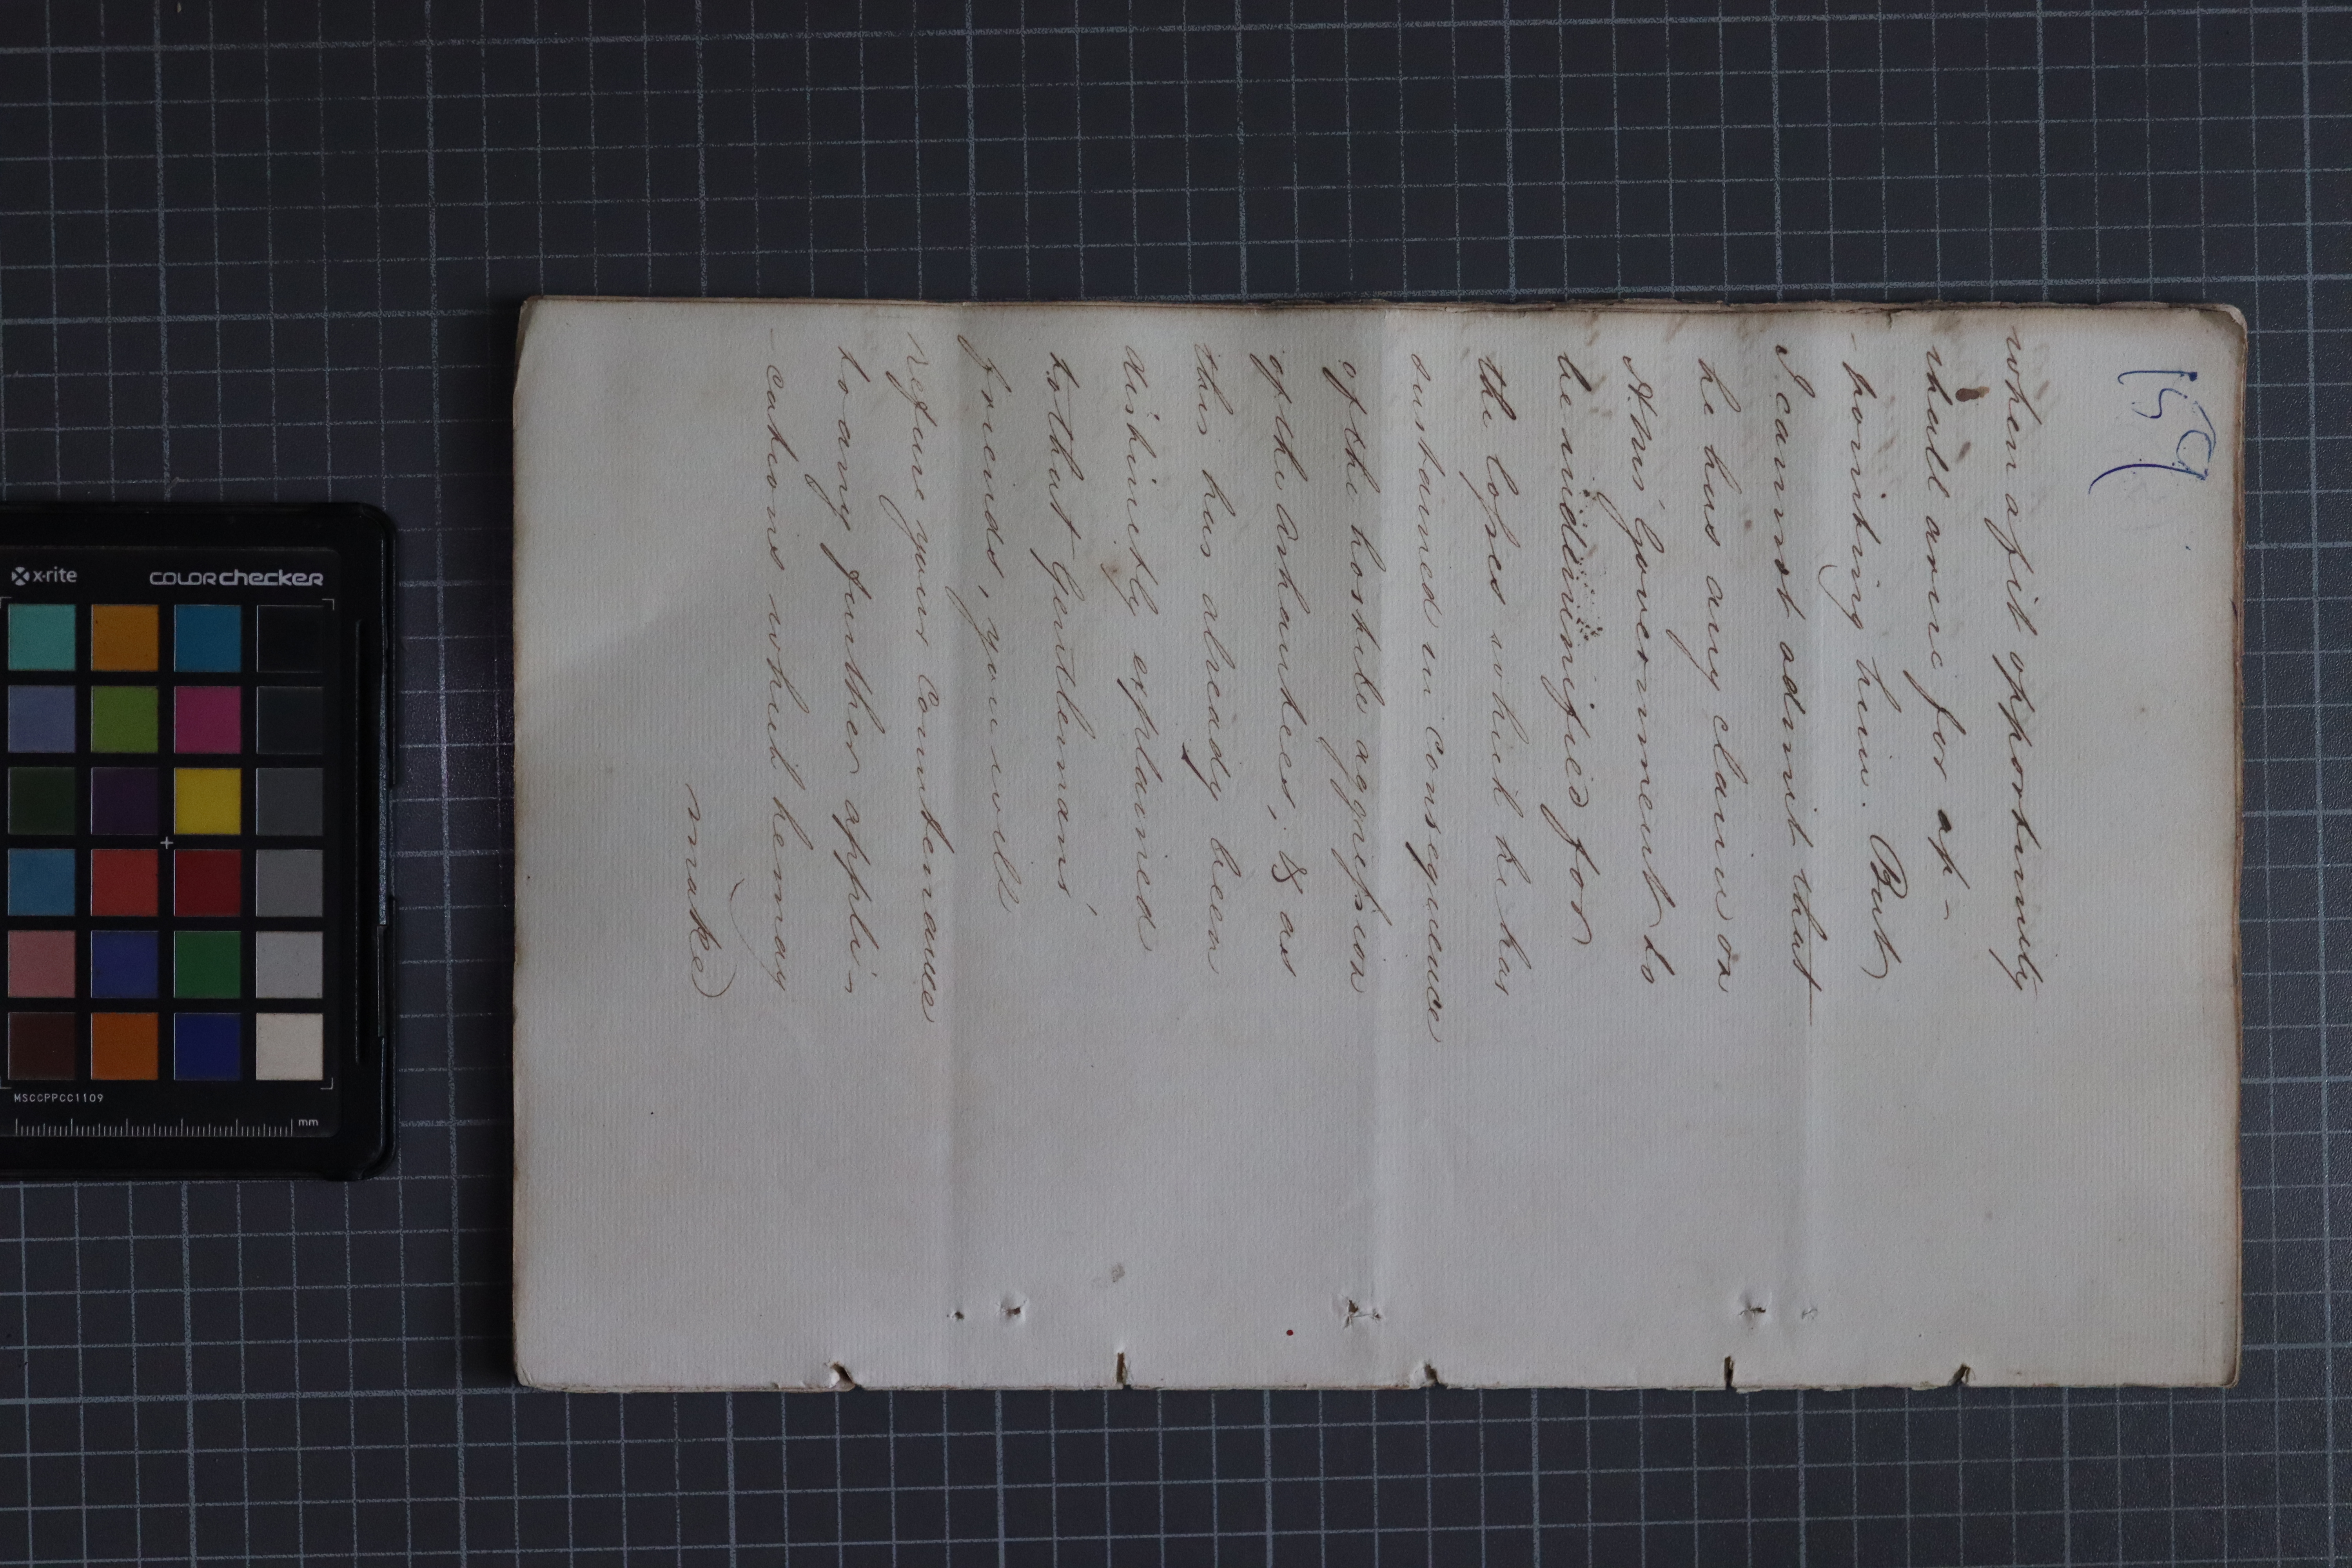 159
when a fit opportunity
shall arise for ap-
-pointing him. But
I cannot admit that
he has any claim on
H: Ms' Government to
be indemnified for
the losses which he has
sustained in consequence
of the hostile aggression
of the Ashantees, & as
this has already been
distinctly explained
to that Gentleman's
friends, you will
refuse your countenance
to any further appli-
-cations which he may
make
x-rite
COLORchecker
MSCCPPCC1109
mm